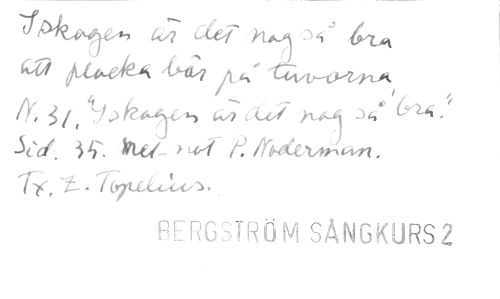 I skogen är det nog så bra
att plocka bär på tuvorna
N. 31. "I skogen är det nog så bra."
Sid. 35. Mel-not P. Noderman.
Tx. Z. Topelius.
BERGSTRÖM SÅNGKURS 2